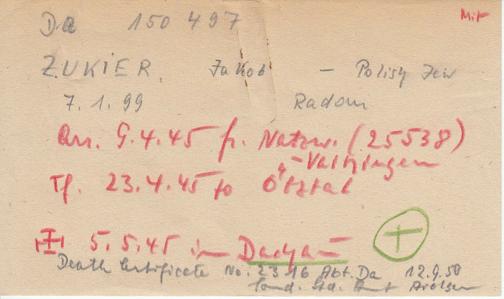 Da 150497 Mit
ZUKIER, Jakob – Polish Jew
7.1.99 Radom
Arr. 9.4.45 fr. Natzw. (25538)
-Vaihingen
Tf. 23.4.45 to Ötztal
5.5.45 in Dachau
Death Certificate No. 2316 Abt. Da 12.9.50
Sond. Std. Amt Arolsen